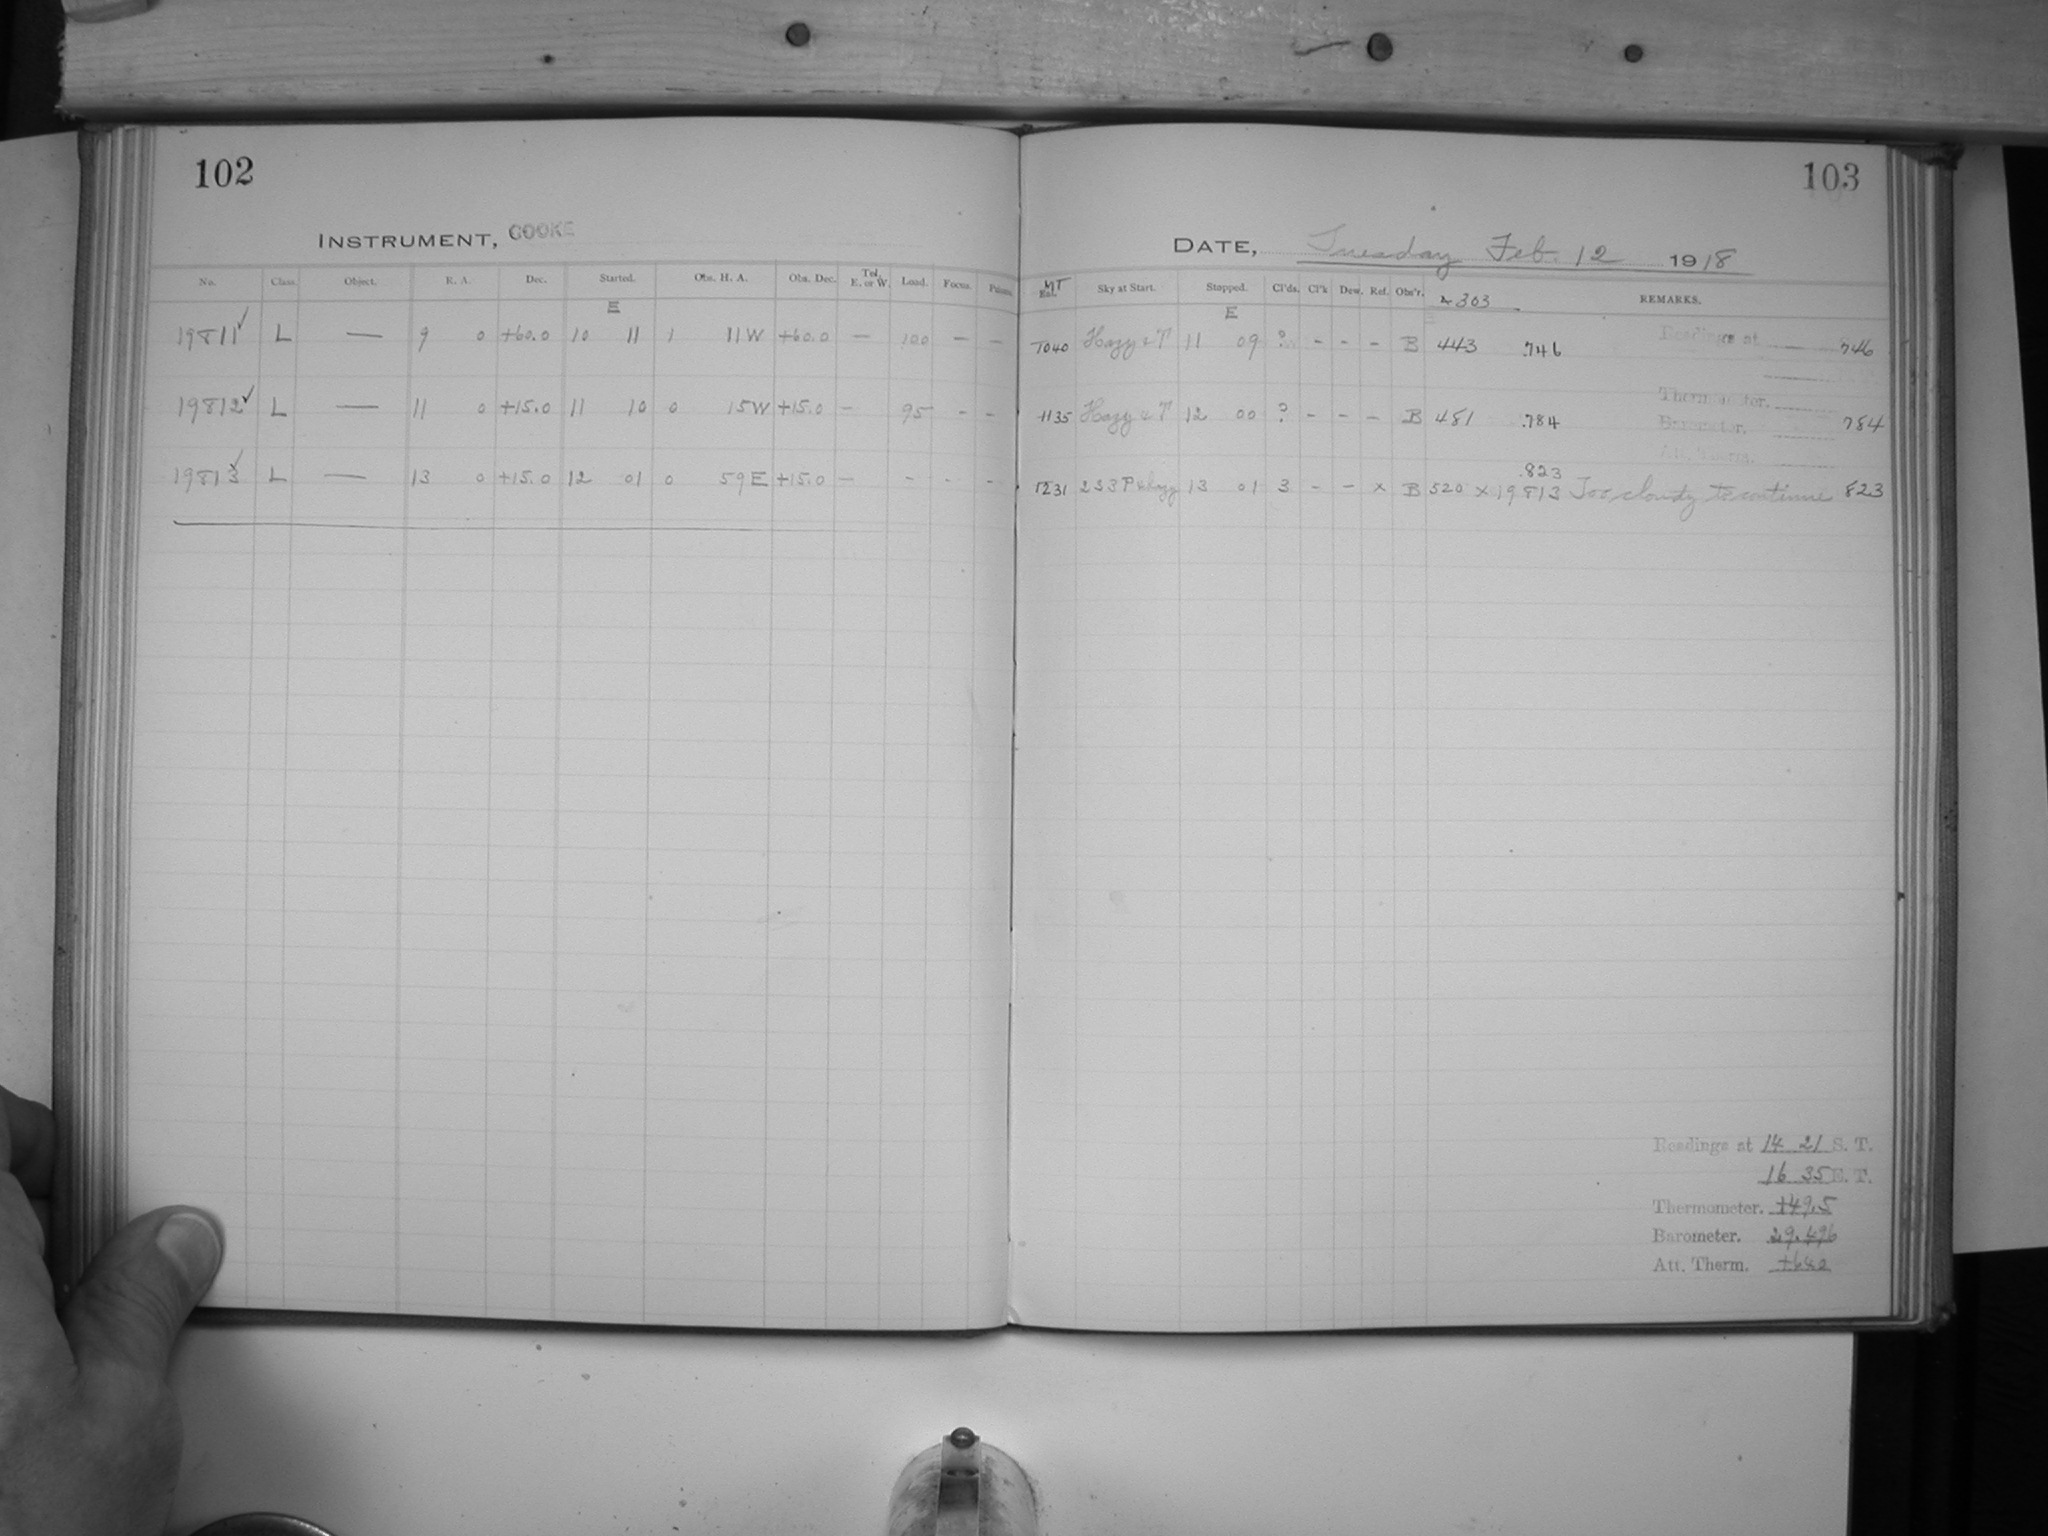 102
INSTRUMENT, COOKE
No. Class. Object. R. A. Dec. Started. Obs. H. A. Obs. Dec. Tel. E. or W. Load. Focus.
E
19811✓ L — 9 0 +60.0 10 11 1 11W +60.0 — 100 — —
19812✓ L — 11 0 +15.0 11 10 0 15W +15.0 — 95 - -
19813✓ L — 13 0 +15.0 12 01 0 59E +15.0 — - - -
103
DATE, Tuesday Feb. 12 1918
Sky at Start. Stopped. Cl'ds. Cl'k Dew. Ref. Obs'r. 303 REMARKS.
E
1040 Hazy & 11 09 ? - - - B 443 .746 Readings at 746
1135 Hazy & 12 00 ? - - - B 481 .784 Barometer. 784
Att. Therm.
.823
1231 13 01 3 - - x B 520 x 19813 Too cloudy to continue 823
Readings at 14 21 S. T.
16 35 E. T.
Thermometer. +49.5
Barometer. 29.496
Att. Therm.